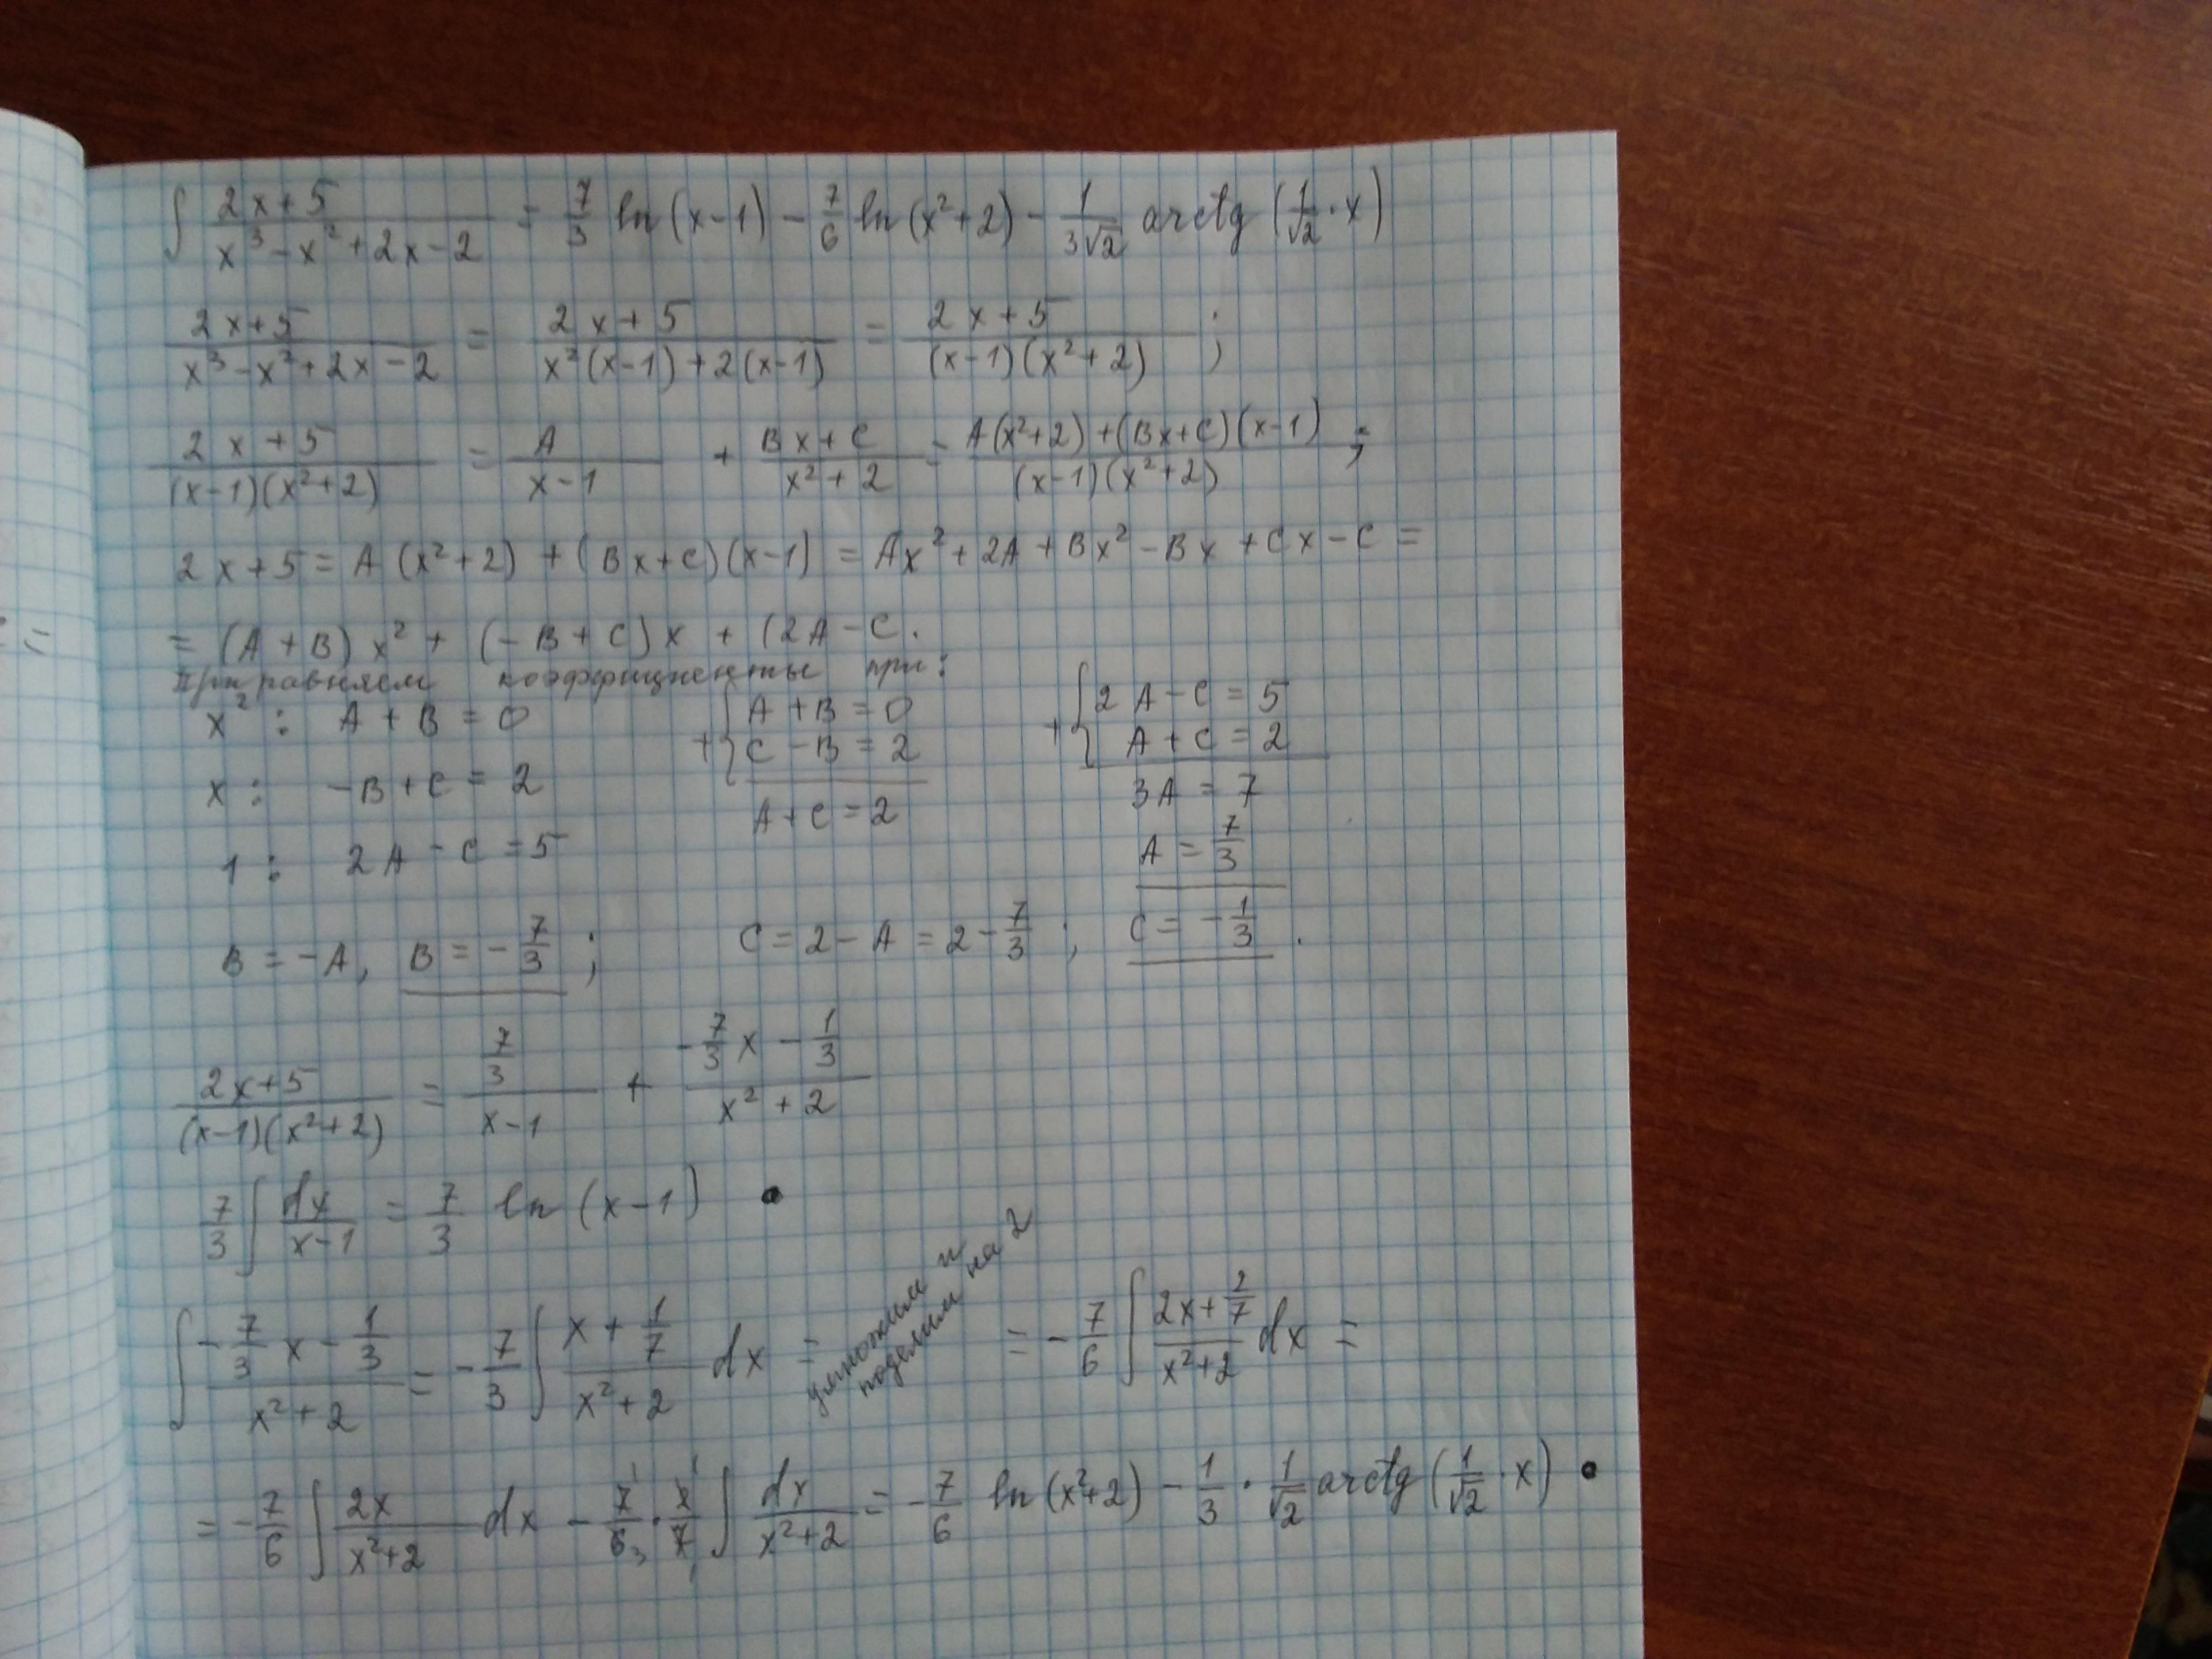 ∫ (2x+5)/(x³-x²+2x-2) = 7/3 ln(x-1) - 7/6 ln(x²+2) - 1/(3√2) arctg(1/√2 · x)
(2x+5)/(x³-x²+2x-2) = (2x+5)/(x²(x-1)+2(x-1)) = (2x+5)/((x-1)(x²+2)) ;
(2x+5)/((x-1)(x²+2)) = A/(x-1) + (Bx+C)/(x²+2) = (A(x²+2)+(Bx+C)(x-1))/((x-1)(x²+2)) ;
2x+5 = A(x²+2) + (Bx+C)(x-1) = Ax²+2A+Bx²-Bx+Cx-C =
= (A+B)x² + (-B+C)x + (2A-C.
Приравняем коэффициенты при:
x² : A+B=0
x : -B+C=2
1 : 2A-C=5
+{ A+B=0
C-B=2
A+C=2
+{ 2A-C=5
A+C=2
3A=7
A=7/3
B=-A, B=-7/3 ; C=2-A=2-7/3 ; C=-1/3 .
(2x+5)/((x-1)(x²+2)) = (7/3)/(x-1) + (-7/3 x - 1/3)/(x²+2)
7/3 ∫ dx/(x-1) = 7/3 ln(x-1) •
∫ (-7/3 x - 1/3)/(x²+2) = -7/3 ∫ (x+1/7)/(x²+2) dx =
умножим и
поделим на 2
= -7/6 ∫ (2x+2/7)/(x²+2) dx =
= -7/6 ∫ 2x/(x²+2) dx - 7/6 · 2/7 ∫ dx/(x²+2) = -7/6 ln(x²+2) - 1/3 · 1/√2 arctg(1/√2 · x) •